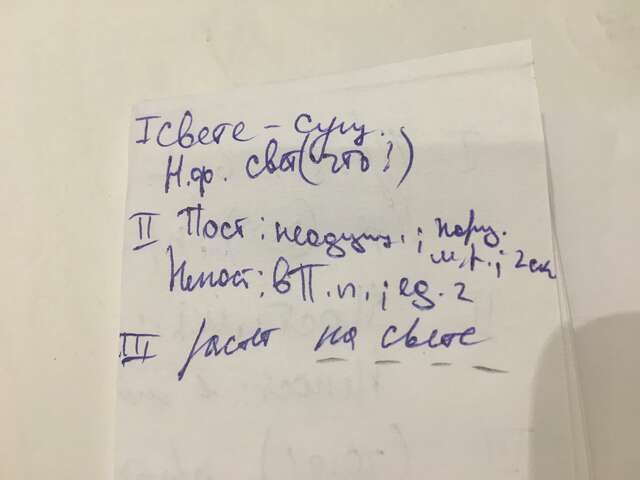 I свете – сущ.
Н.ф. свет (что?)
II Пост: неодуш.; нариц.
м.р.; 2 скл
Непост: в П.п.; ед.ч
III растёт на свете